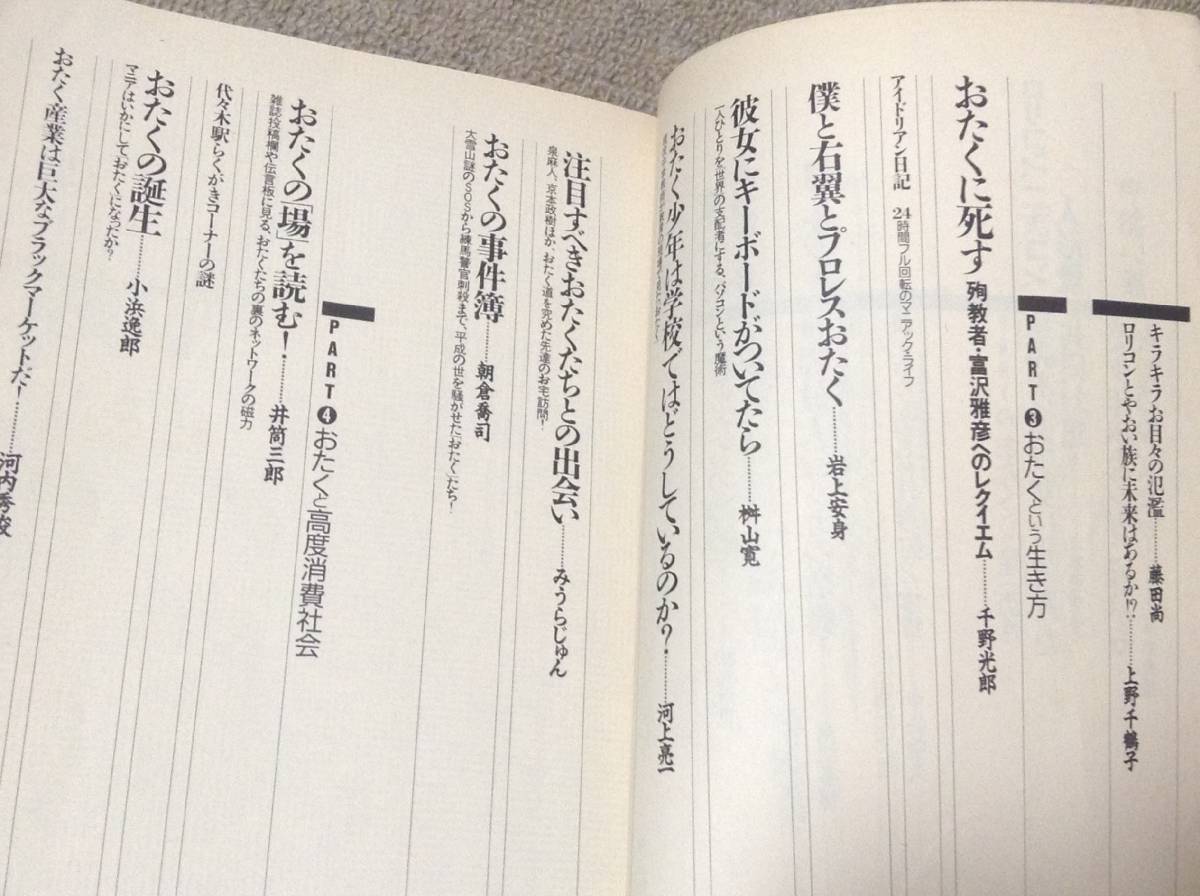 キラキラお目々の氾濫………藤田尚
ロリコンとやおい族に未来はあるか!?………上野千鶴子
PART❸おたくという生き方
おたくに死す 殉教者・富沢雅彦へのレクイエム………千野光郎
アイドリアン日記 24時間フル回転のマニアック・ライフ
僕と右翼とプロレスおたく………岩上安身
彼女にキーボードがついてたら………桝山寛
一人ひとりを“世界”の支配者にする、パソコンという魔術
おたく少年は学校ではどうしているのか?………河上亮一
注目すべきおたくたちとの出会い………みうらじゅん
泉麻人、京本政樹ほか、おたく道を究めた先達のお宅訪問!
おたくの事件簿………朝倉喬司
大雪山謎のSOSから練馬警官刺殺まで、平成の世を騒がせた「おたく」たち!
PART❹おたくと高度消費社会
おたくの「場」を読む!………井筒三郎
雑誌投稿欄や伝言板に見る、おたくたちの裏のネットワークの磁力
代々木駅らくがきコーナーの謎
おたくの誕生………小浜逸郎
マニアはいかにして「おたく」になったか?
おたく産業は巨大なブラックマーケットだ!………河内秀俊